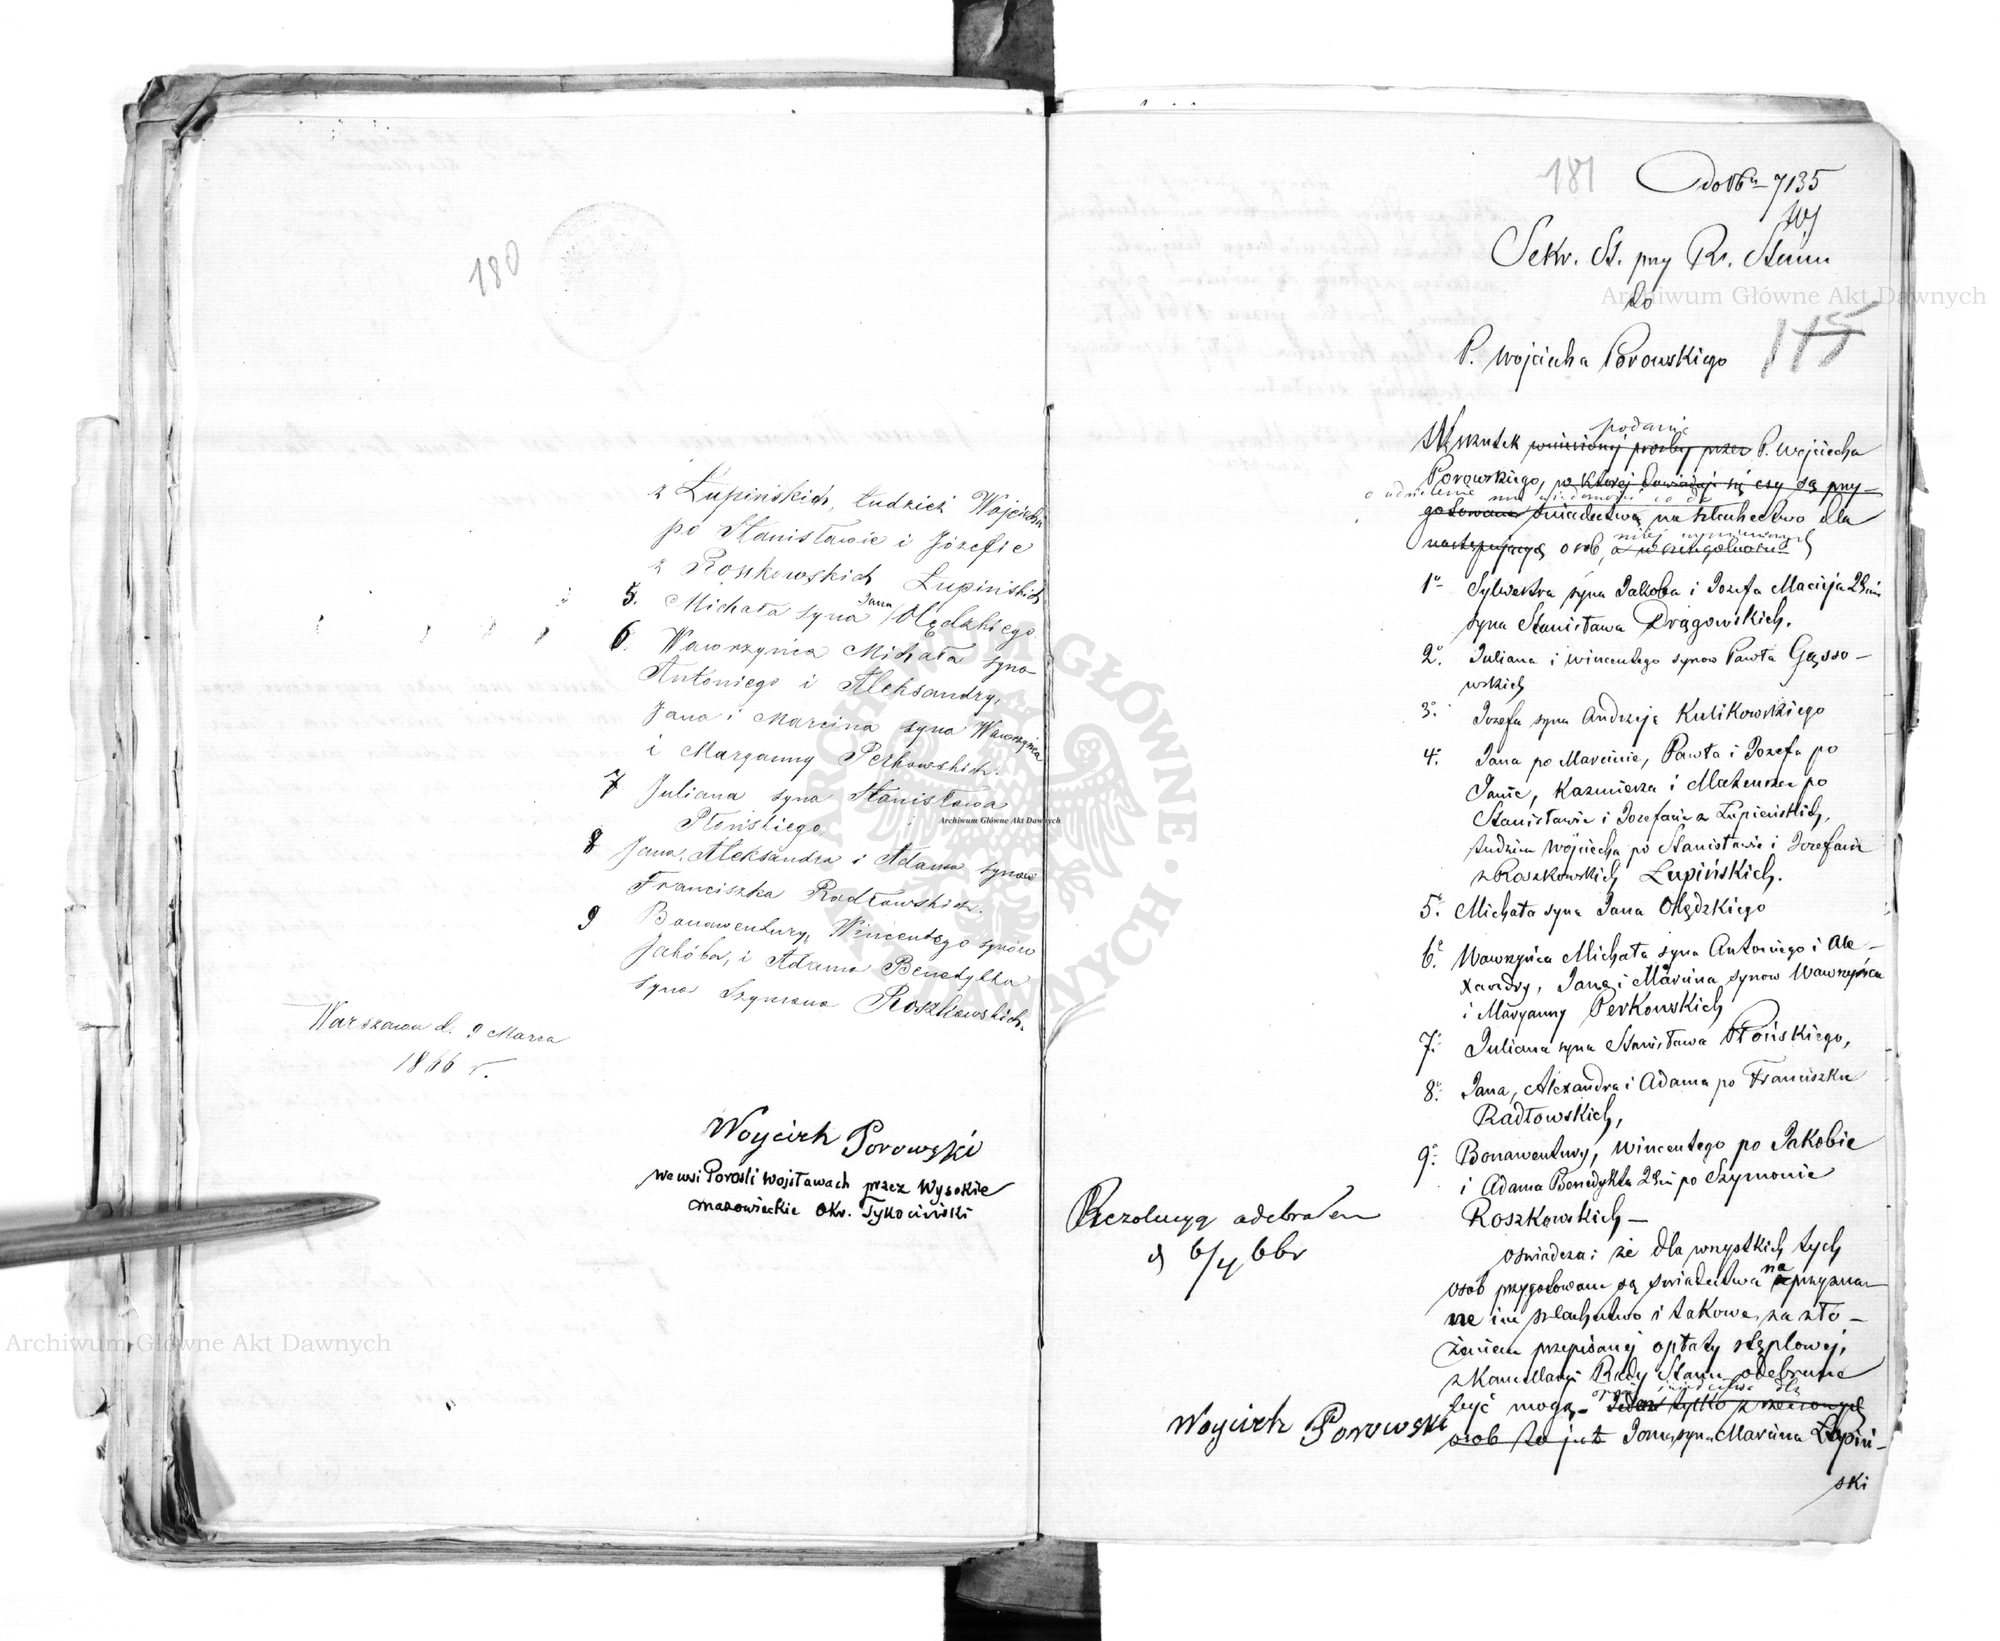 180
z Łupińskich, tudzież Wojciecha
po Stanisławie i Józefie
z Roszkowskich Łupińskich
5. Michała syna Jana Olędzkiego
6. Wawrzyńca Michała syna
Antoniego i Aleksandry,
Jana i Marcina syna Wawrzyńca
i Maryanny Perkowskich.
7 Juliana syna Stanisława
Płońskiego
8 Jana, Aleksandra i Adama synów
Franciszka Radłowskich.
9 Bonawentury, Wincentego synów
Jakóba, i Adama Benedykta
syna Szymona Roszkowskich.
Warszawa d. 9 Marca
1866 r.
Woyciech Porowski
we wsi Porosli Wojsławach przez Wysokie
Mazowieckie Okr. Tykociński
181
do № 7135
Sekr. St. przy Rr. Stanu
do
P. Wojciecha Porowskiego
115
podanie
Wskutek wniesionej prośby przez P. Wojciecha
Porowskiego, w której dowiaduje się czy są przy-
o udzielenie mu wiadomości co do
gotowane świadectwa na szlachectwo dla
niżej wymienionych
następujących osób,
1o Sylwestra syna Jakóba i Jozefa Macieja 2 im
syna Stanisława Drągowskich.
2o. Juliana i Wincentego synow Pawła Gąsso-
wskich
3o. Jozefa syna Andrzeja Kulikowskiego
4o. Jana po Marcinie, Pawła i Jozefa po
Janie, Kazimierza i Mateusza po
Stanisławie i Jozefacie z Łupieńskich,
tudzież Wojciecha po Stanisławie i Jozefacie
z Roszkowskich Łupińskich.
5o. Michała syna Jana Olędzkiego
6o. Wawrzyńca Michała syna Antoniego i Ale-
xandry, Jana i Marcina synow Wawrzyńca
i Maryanny Perkowskich
7o. Juliana syna Stanisława Płońskiego,
8o. Jana, Alexandra i Adama po Franciszku
Radłowskich,
9o. Bonawentury, Wincentego po Jakobie
i Adama Benedykta 2 im po Szymonie
Roszkowskich —
oświadcza: że dla wszystkich tych
osób przygotowane są świadectwa na przyzna-
ne im szlachectwo i takowe, za zło-
żeniem przepisanej opłaty stęplowej,
z Kancellaryi Rady Stanu odebrane
być mogą. — Jeden tylko z rzeczonych
osób to jest Jana syna Marcina Łupiń-
ski
Rezolucyą odebrałem
d 6/4 66 r
Woyciech Porowski
Archiwum Główne Akt Dawnych
Archiwum Główne Akt Dawnych
Archiwum Główne Akt Dawnych
ARCHIWUM GŁÓWNE AKT DAWNYCH